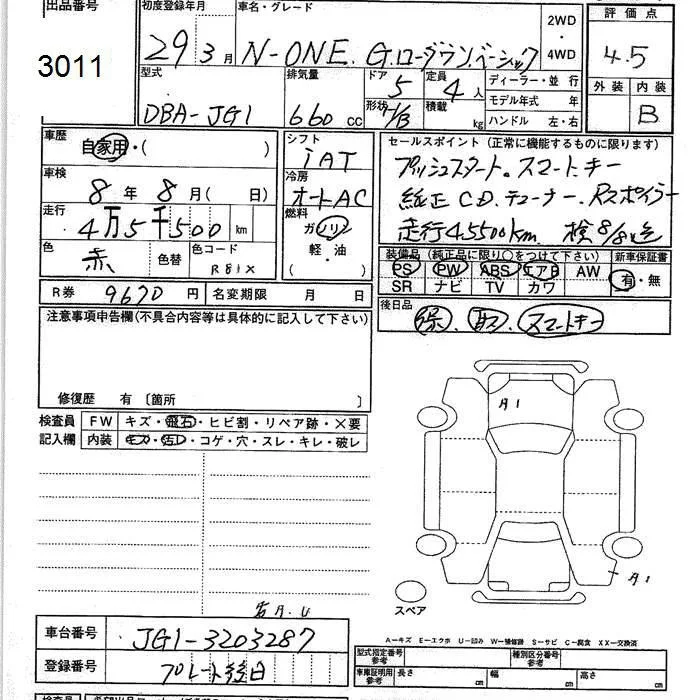 出品番号 初度登録年月 車名・グレード 2WD・4WD 評価点
3011 29年3月 N-ONE. G.ローダウン.ベーシック 4.5
型式 排気量 ドア 5 定員 4人 ディーラー・並行 外装 内装
DBA-JG1 660cc 形状 H/B 積載 kg モデル年式 年 B
ハンドル 左・右
車歴 自家用・( ) シフト iAT セールスポイント(正常に機能するものに限ります)
車検 8年8月( 日) 冷房 オートAC プッシュスタート。スマートキー
走行 4万5千500km 燃料 ガソリン 純正CD.チューナー.Rスポイラー
軽・油 走行45500km. 検8/8迄
色 赤 色替 色コード R81X 装備品(純正品に限り○をつけて下さい) 新車保証書
PS PW ABS エアB AW 有・無
SR ナビ TV カワ
R券 9670円 名変期限 月 日 後日品
注意事項申告欄(不具合内容等は具体的に記入して下さい) 保.取.スマートキー
修復歴 有〔箇所 〕
検査員 FW キズ・飛石・ヒビ割・リペア跡・×要
記入欄 内装 キズ・汚レ・コゲ・穴・スレ・キレ・破レ
A1
A1
スペア
A.U
車台番号 JG1-3203287
登録番号 プレート後日
A-キズ E-エクボ U-凹み W-補修跡 S-サビ C-腐食 XX-交換済
型式指定番号 参考 種別区分番号 参考
車庫証明用 参考 長さ cm 幅 cm 高さ cm